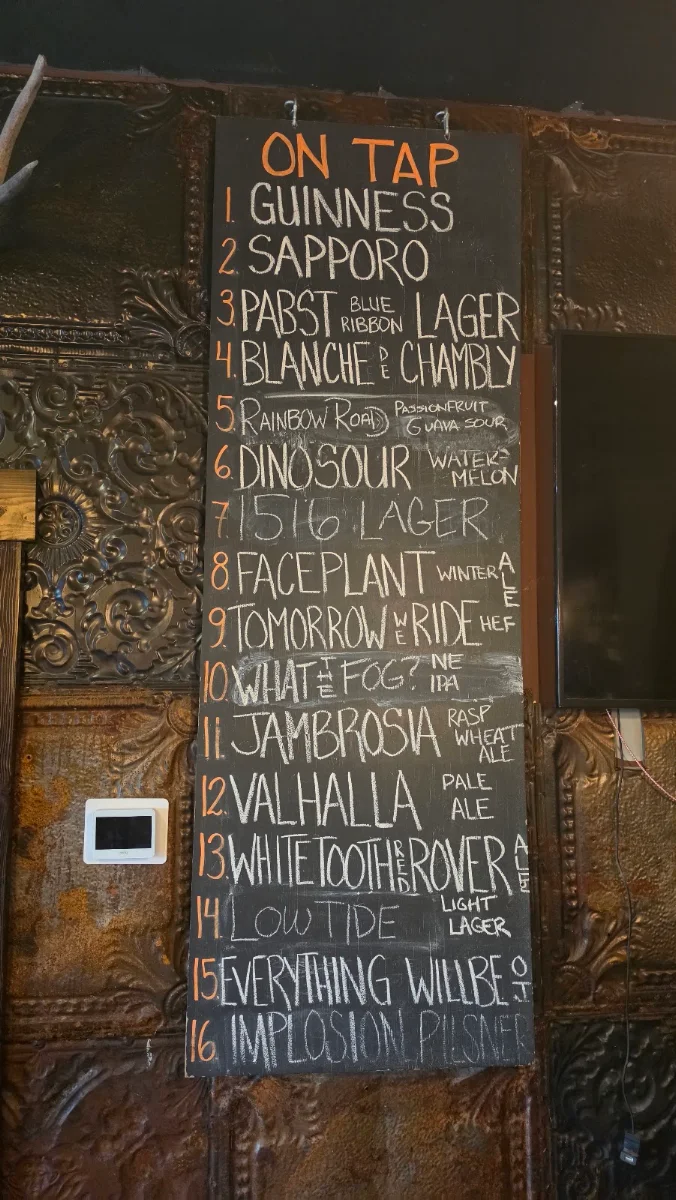 ON TAP
1. GUINNESS
2. SAPPORO
3. PABST BLUE RIBBON LAGER
4. BLANCHE DE CHAMBLY
5. RAINBOW ROAD PASSIONFRUIT GUAVA SOUR
6. DINOSOUR WATER-MELON
7. 1516 LAGER
8. FACEPLANT WINTER ALE
9. TOMORROW WE RIDE HEF
10. WHAT THE FOG? NE IPA
11. JAMBROSIA RASP WHEAT ALE
12. VALHALLA PALE ALE
13. WHITETOOTH RED ROVER ALE
14. LOW TIDE LIGHT LAGER
15. EVERYTHING WILL BE OJ
16. IMPLOSION PILSNER